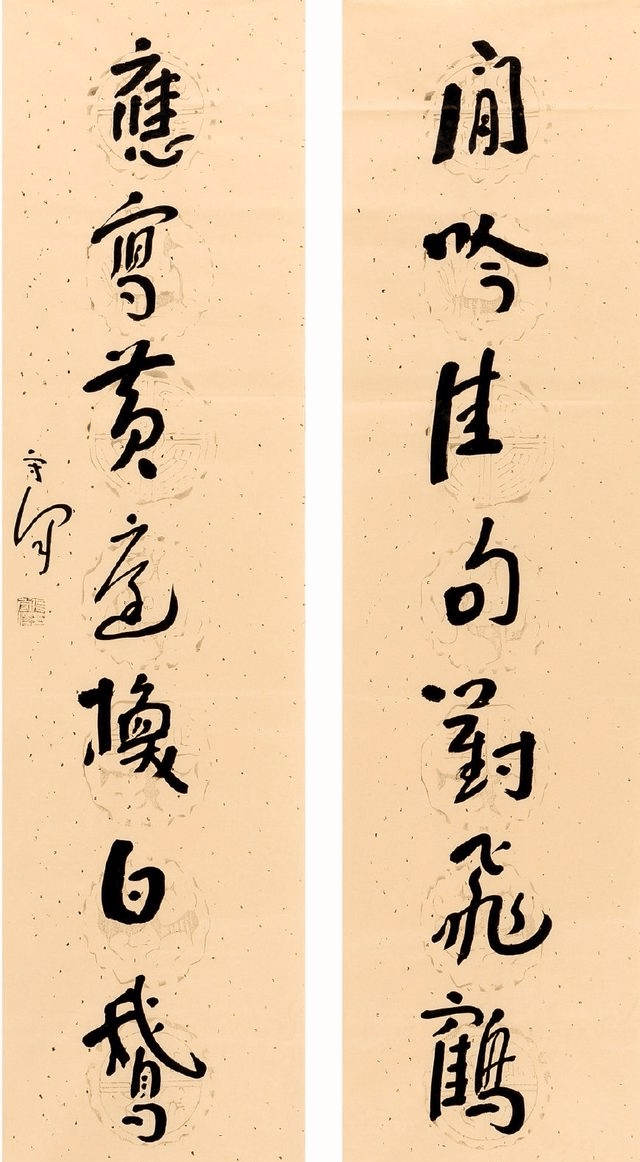 閒吟佳句對飛鶴
應寫黃庭換白鵝
守